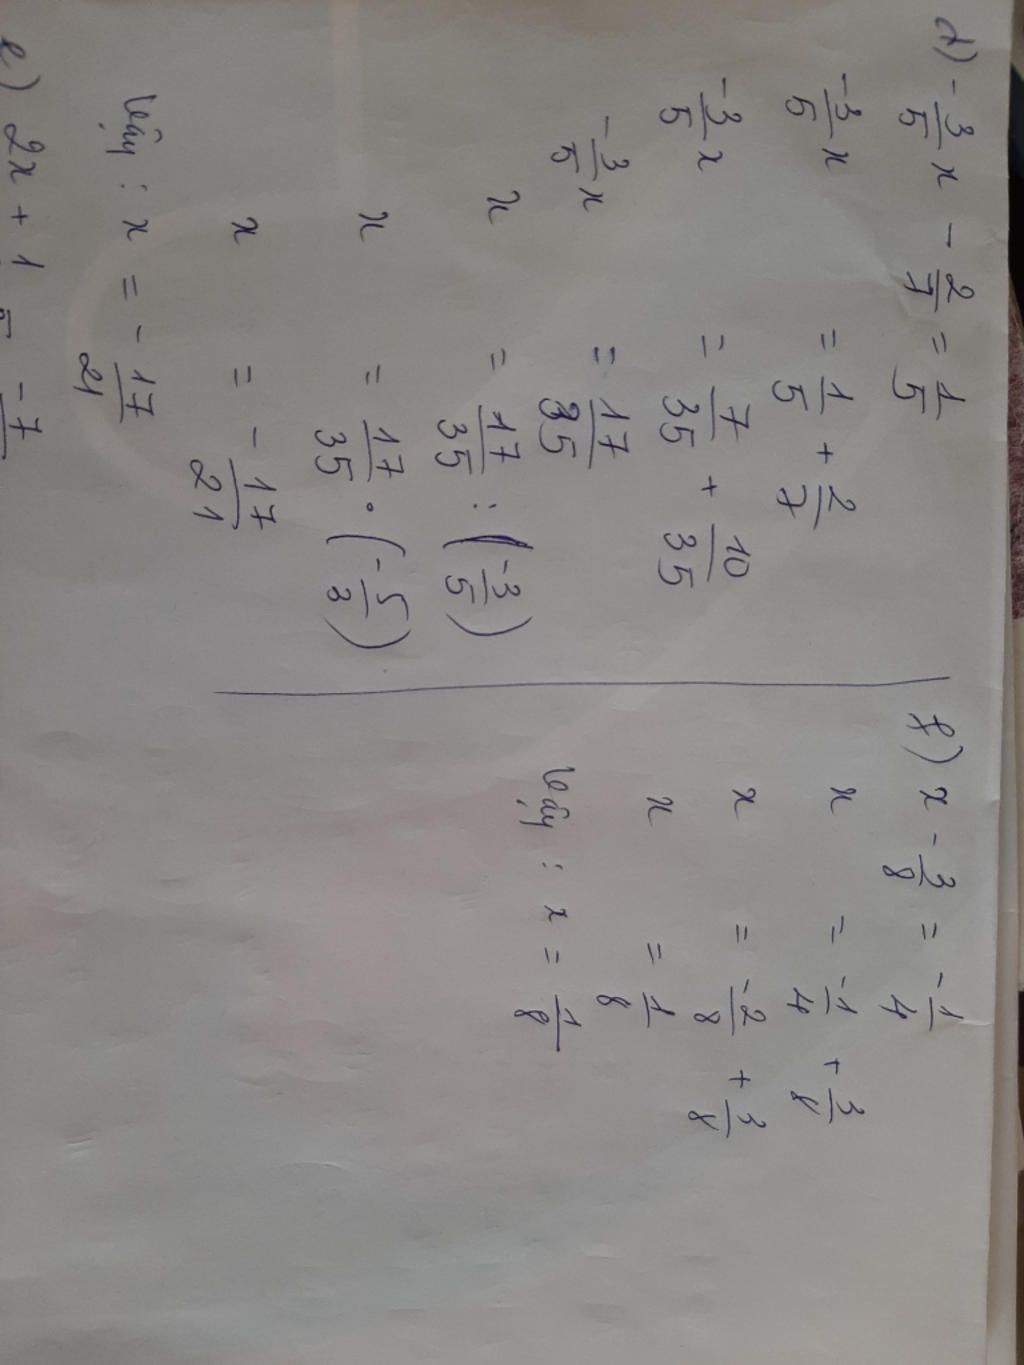 d) -3/5 x - 2/7 = 1/5
-3/5 x = 1/5 + 2/7
-3/5 x = 7/35 + 10/35
-3/5 x = 17/35
x = 17/35 : (-3/5)
x = 17/35 . (-5/3)
x = -17/21
Vậy : x = -17/21
e) 2x + 1
f) x - 3/8 = -1/4
x = -1/4 + 3/8
x = -2/8 + 3/8
x = 1/8
Vậy : x = 1/8